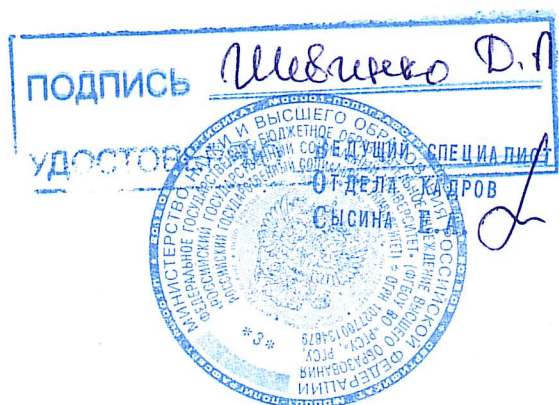 ПОДПИСЬ Шевченко Д.П
УДОСТОВ
ВЕДУЩИЙ СПЕЦИАЛИСТ
ОТДЕЛА КАДРОВ
СЫСИНА Е.А.
МИНИСТЕРСТВО НАУКИ И ВЫСШЕГО ОБРАЗОВАНИЯ РОССИЙСКОЙ ФЕДЕРАЦИИ
ФЕДЕРАЛЬНОЕ ГОСУДАРСТВЕННОЕ БЮДЖЕТНОЕ ОБРАЗОВАТЕЛЬНОЕ УЧРЕЖДЕНИЕ ВЫСШЕГО ОБРАЗОВАНИЯ
РОССИЙСКИЙ ГОСУДАРСТВЕННЫЙ СОЦИАЛЬНЫЙ УНИВЕРСИТЕТ
(ФГБОУ ВО "РГСУ", РГСУ,
*3*